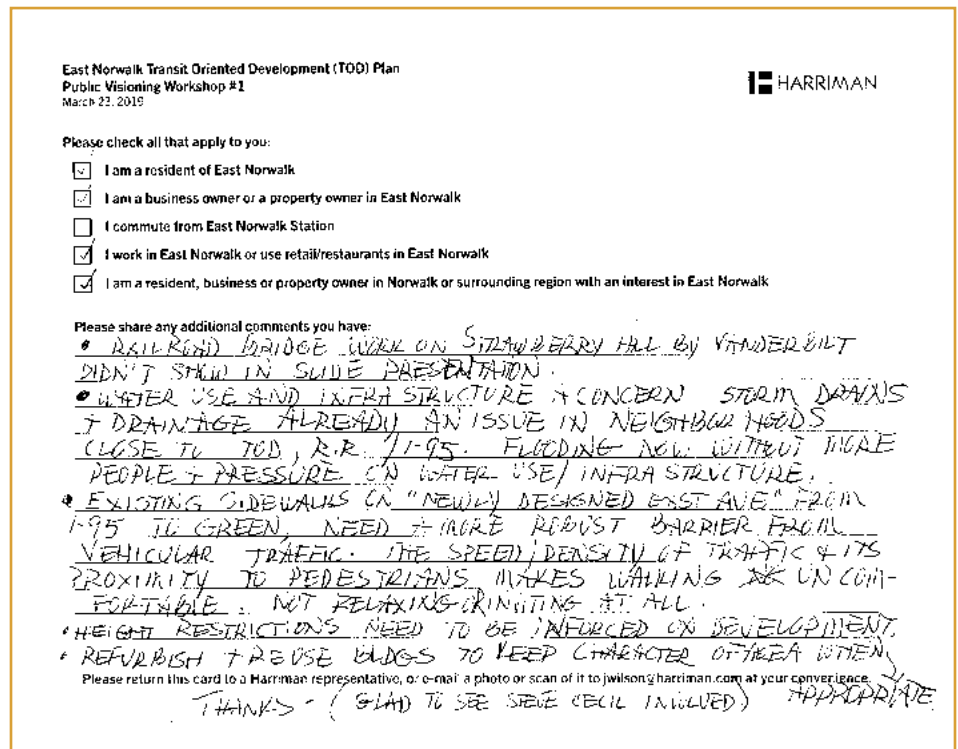 East Norwalk Transit Oriented Development (TOD) Plan
Public Visioning Workshop #1
March 23, 2019
HARRIMAN
Please check all that apply to you:
I am a resident of East Norwalk
I am a business owner or a property owner in East Norwalk
I commute from East Norwalk Station
I work in East Norwalk or use retail/restaurants in East Norwalk
I am a resident, business or property owner in Norwalk or surrounding region with an interest in East Norwalk
Please share any additional comments you have:
• RAILROAD BRIDGE WORK ON STRAWBERRY HILL BY VANDERBILT
DIDN'T SHOW IN SLIDE PRESENTATION.
• WATER USE AND INFRASTRUCTURE A CONCERN STORM DRAINS
+ DRAINAGE ALREADY AN ISSUE IN NEIGHBORHOODS
CLOSE TO TOD, R.R. / I-95. FLOODING NOW WITHOUT MORE
PEOPLE + PRESSURE ON WATER USE/ INFRASTRUCTURE.
• EXISTING SIDEWALKS ON "NEWLY DESIGNED EAST AVE" FROM
I-95 TO GREEN, NEED A MORE ROBUST BARRIER FROM
VEHICULAR TRAFFIC. THE SPEED/DENSITY OF TRAFFIC & ITS
PROXIMITY TO PEDESTRIANS MAKES WALKING UNCOM-
FORTABLE. NOT RELAXING OR INVITING AT ALL.
• HEIGHT RESTRICTIONS NEED TO BE INFORCED ON DEVELOPMENT.
• REFURBISH + REUSE BLDGS TO KEEP CHARACTER OF AREA WHEN
APPROPRIATE
Please return this card to a Harriman representative, or e-mail a photo or scan of it to jwilson@harriman.com at your convenience.
THANKS - (GLAD TO SEE STEVE CECIL INVOLVED)